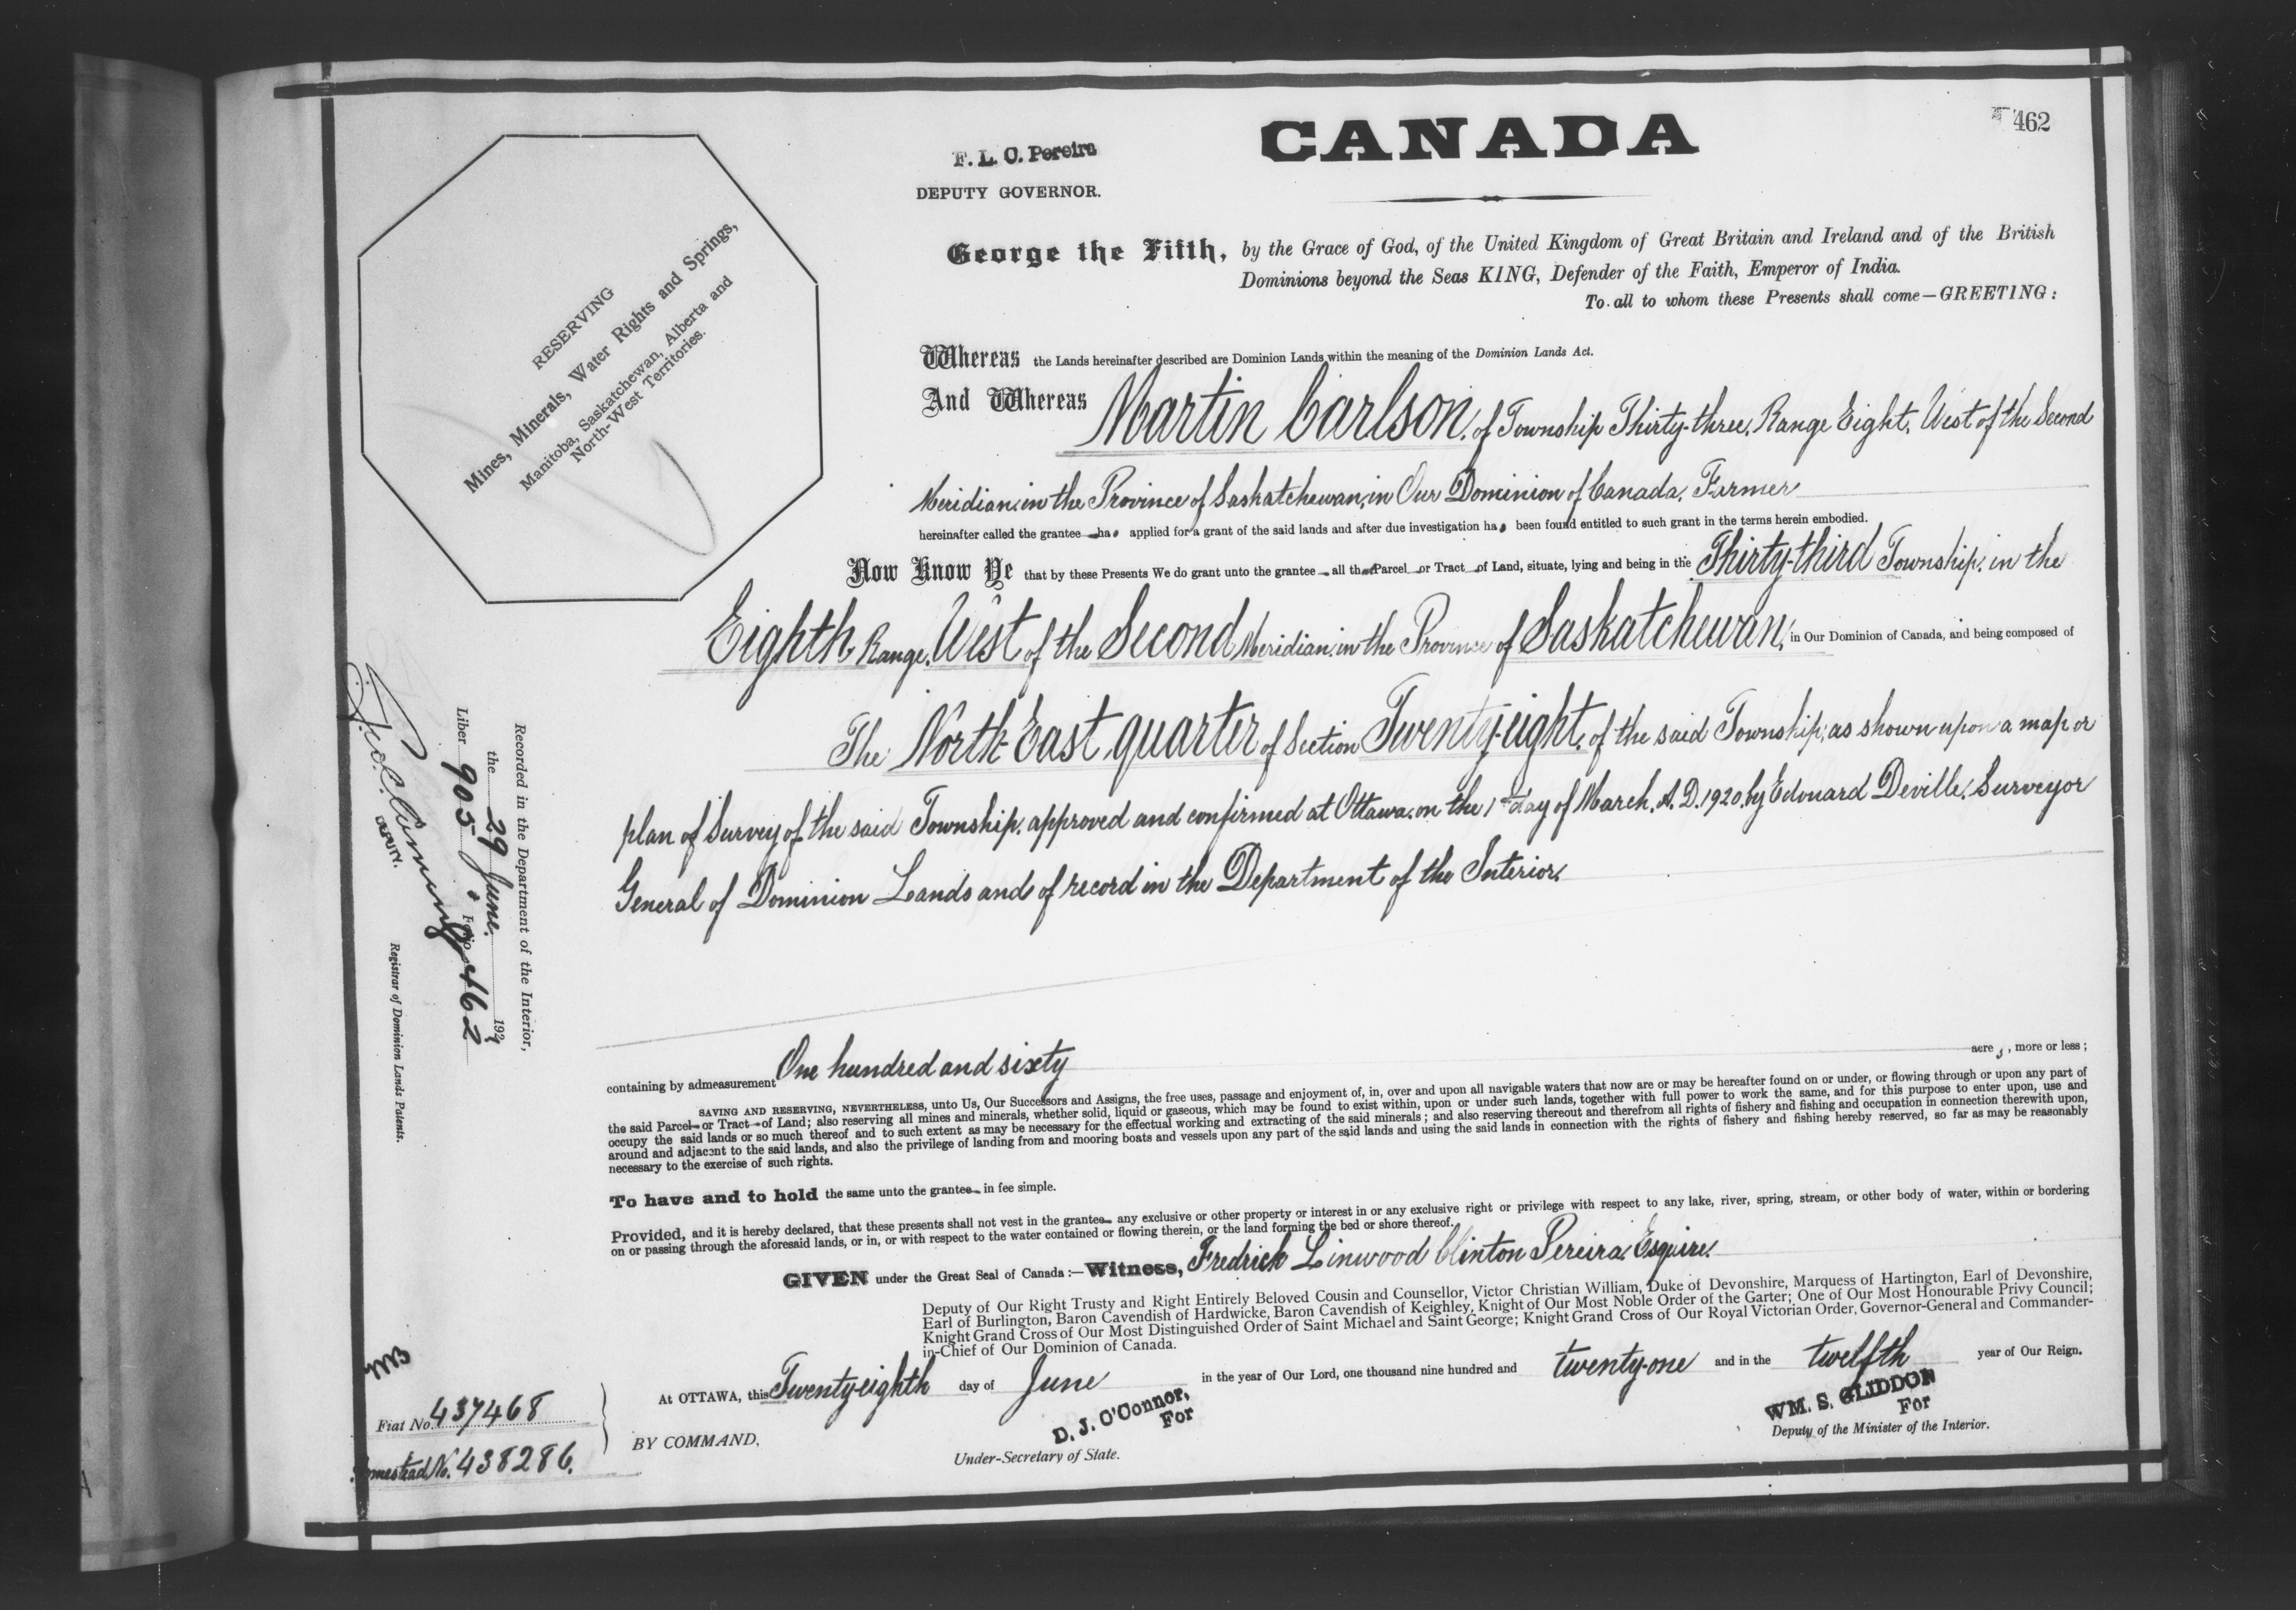 462
CANADA
F. L. C. Pereira
DEPUTY GOVERNOR.
RESERVING
Mines, Minerals, Water Rights and Springs,
Manitoba, Saskatchewan, Alberta and
North-West Territories.
George the Fifth, by the Grace of God, of the United Kingdom of Great Britain and Ireland and of the British
Dominions beyond the Seas KING, Defender of the Faith, Emperor of India.
To all to whom these Presents shall come—GREETING:
Whereas the Lands hereinafter described are Dominion Lands within the meaning of the Dominion Lands Act.
And Whereas Martin Carlson, of Township Thirty-three, Range Eight, West of the Second
Meridian, in the Province of Saskatchewan, in Our Dominion of Canada, Farmer
hereinafter called the grantee has applied for a grant of the said lands and after due investigation has been found entitled to such grant in the terms herein embodied.
Now Know Ye that by these Presents We do grant unto the grantee all that Parcel or Tract of Land, situate, lying and being in the Thirty-third Township, in the
Eighth Range, West of the Second Meridian, in the Province of Saskatchewan, in Our Dominion of Canada, and being composed of
The North East quarter of Section Twenty-eight, of the said Township, as shown upon a map or
plan of Survey of the said Township, approved and confirmed at Ottawa, on the 1st day of March, A.D. 1920, by Edouard Deville, Surveyor
General of Dominion Lands and of record in the Department of the Interior.
containing by admeasurement One hundred and sixty acres, more or less;
SAVING AND RESERVING, NEVERTHELESS, unto Us, Our Successors and Assigns, the free uses, passage and enjoyment of, in, over and upon all navigable waters that now are or may be hereafter found on or under, or flowing through or upon any part of
the said Parcel or Tract of Land; also reserving all mines and minerals, whether solid, liquid or gaseous, which may be found to exist within, upon or under such lands, together with full power to work the same, and for this purpose to enter upon, use and
occupy the said lands or so much thereof and to such extent as may be necessary for the effectual working and extracting of the said minerals; and also reserving thereout and therefrom all rights of fishery and fishing and occupation in connection therewith upon,
around and adjacent to the said lands, and also the privilege of landing from and mooring boats and vessels upon any part of the said lands and using the said lands in connection with the rights of fishery and fishing hereby reserved, so far as may be reasonably
necessary to the exercise of such rights.
To have and to hold the same unto the grantee in fee simple.
Provided, and it is hereby declared, that these presents shall not vest in the grantee any exclusive or other property or interest in or any exclusive right or privilege with respect to any lake, river, spring, stream, or other body of water, within or bordering
on or passing through the aforesaid lands, or in, or with respect to the water contained or flowing therein, or the land forming the bed or shore thereof.
GIVEN under the Great Seal of Canada:—Witness, Fredrick Linwood Clinton Pereira, Esquire,
Deputy of Our Right Trusty and Right Entirely Beloved Cousin and Counsellor, Victor Christian William, Duke of Devonshire, Marquess of Hartington, Earl of Devonshire,
Earl of Burlington, Baron Cavendish of Hardwicke, Baron Cavendish of Keighley, Knight of Our Most Noble Order of the Garter; One of Our Most Honourable Privy Council;
Knight Grand Cross of Our Most Distinguished Order of Saint Michael and Saint George; Knight Grand Cross of Our Royal Victorian Order, Governor-General and Commander-
in-Chief of Our Dominion of Canada.
At OTTAWA, this Twenty-eighth day of June in the year of Our Lord, one thousand nine hundred and twenty-one and in the twelfth year of Our Reign.
BY COMMAND,
D. J. O'Connor,
For
Under-Secretary of State.
WM. S. GLIDDON
For
Deputy of the Minister of the Interior.
Fiat No. 437468
Homestead No. 438286.
Recorded in the Department of the Interior,
the 29 June, 1921
Liber 905 Folio 462
DEPUTY.
Registrar of Dominion Lands Patents.